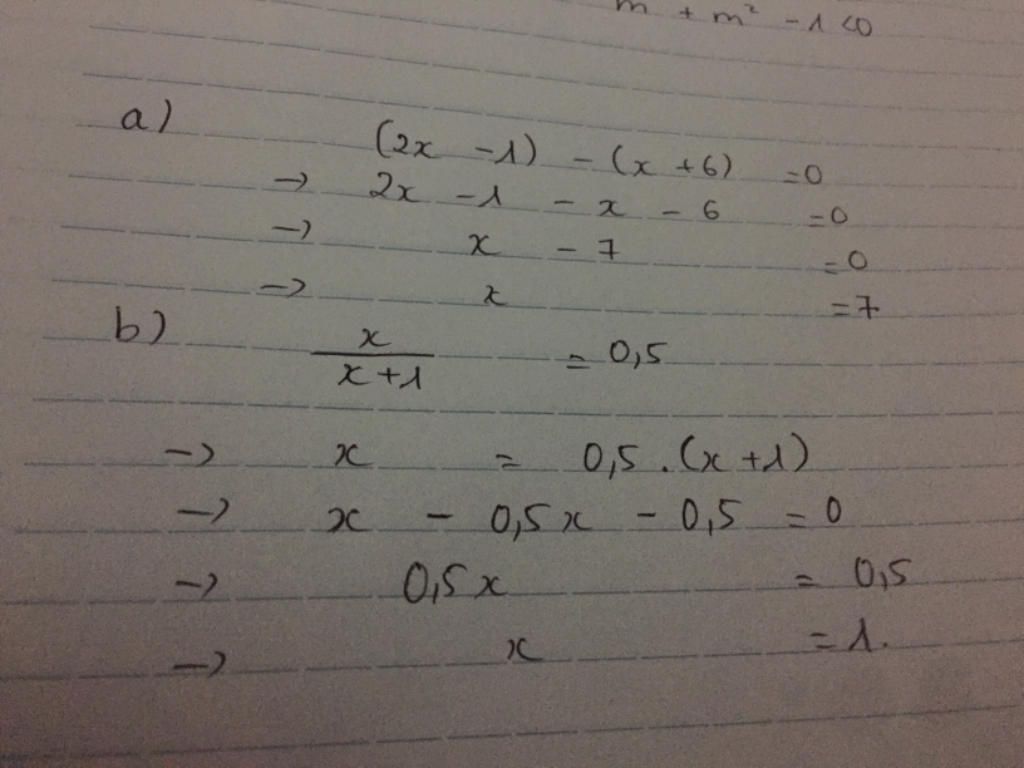 m + m² - 1 <0
a)
(2x - 1) - (x + 6) = 0
→ 2x - 1 - x - 6 = 0
→ x - 7 = 0
→ x = 7
b)
x
/
x + 1
= 0,5
→ x = 0,5 . (x + 1)
→ x - 0,5x - 0,5 = 0
→ 0,5x = 0,5
→ x = 1.